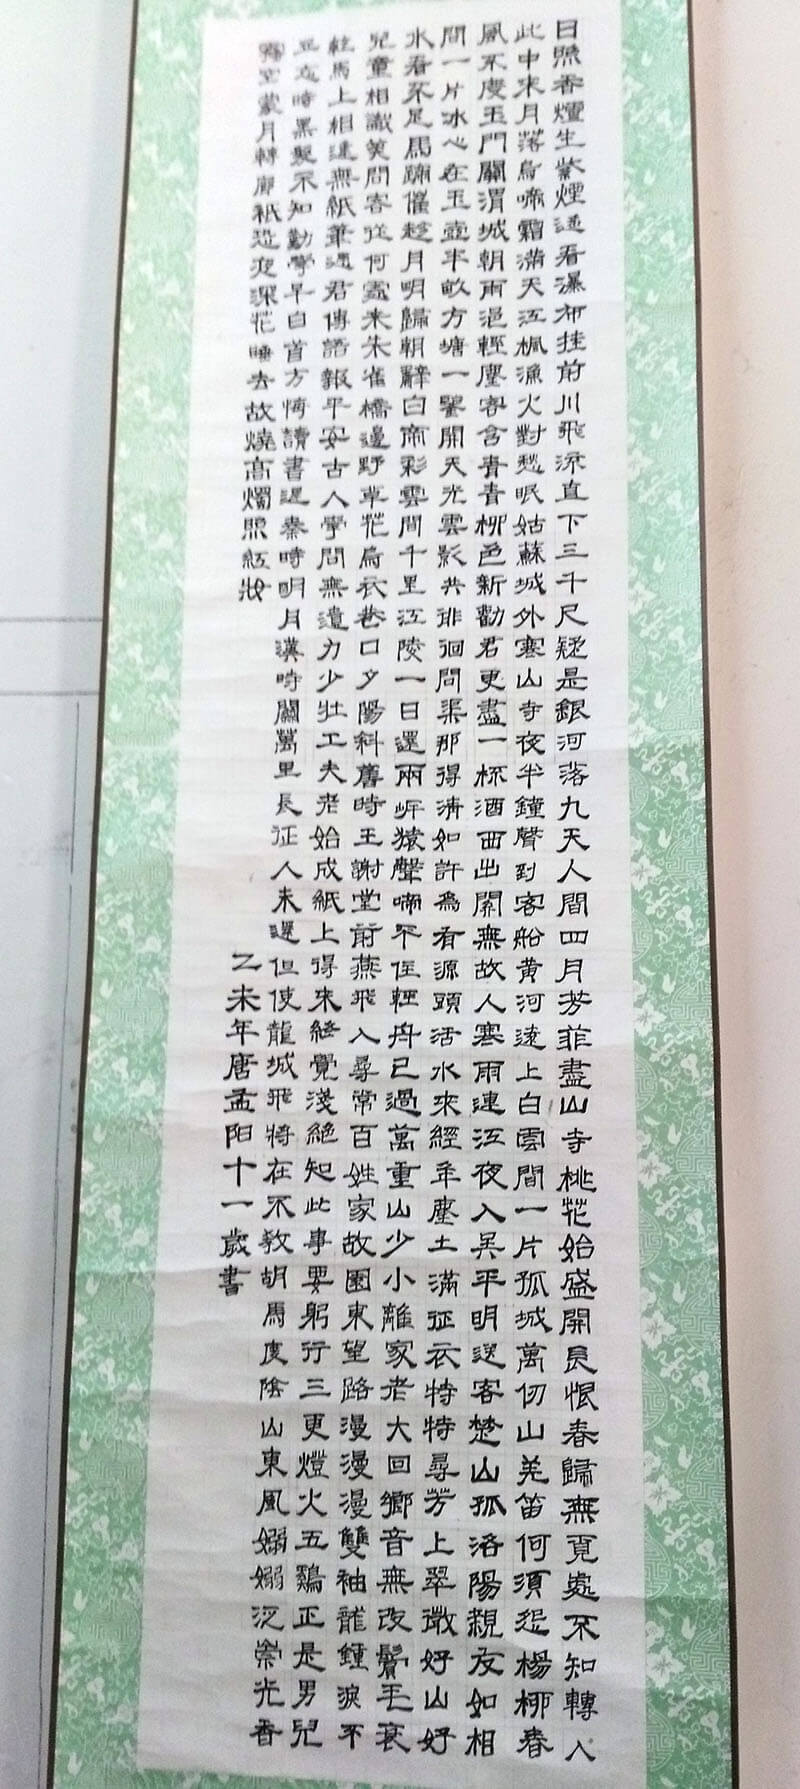 日照香爐生紫煙遥看瀑布挂前川飛流直下三千尺疑是銀河落九天人間四月芳菲盡山寺桃花始盛開長恨春歸無覓處不知轉入
此中來月落烏啼霜滿天江楓漁火對愁眠姑蘇城外寒山寺夜半鐘聲到客船黄河遠上白雲間一片孤城萬仞山羌笛何須怨楊柳春
風不度玉門關渭城朝雨浥輕塵客舍青青柳色新勸君更盡一杯酒西出關無故人寒雨連江夜入吴平明送客楚山孤洛陽親友如相
問一片冰心在玉壺半畝方塘一鑒開天光雲影共徘徊問渠那得清如許為有源頭活水來經年塵土滿征衣特特尋芳上翠微好山好
水看不足馬蹄催趁月明歸朝辭白帝彩雲間千里江陵一日還兩岸猿聲啼不住輕舟已過萬重山少小離家老大回鄉音無改鬢毛衰
兒童相識笑問客從何處來朱雀橋邊野草花烏衣巷口夕陽斜舊時王謝堂前燕飛入尋常百姓家故園東望路漫漫漫雙袖龍鍾淚不
乾馬上相逢無紙筆憑君傳語報平安古人學問無遺力少壯工夫老始成紙上得來終覺淺絕知此事要躬行三更燈火五鷄正是男兒
立志時黑髮不知勤學早白首方悔讀書遲秦時明月漢時關萬里長征人未還但使龍城飛將在不教胡馬度陰山東風嫋嫋泛崇光香
霧空蒙月轉廊祇恐夜深花睡去故燒高燭照紅妝
乙未年唐孟阳十一歲書